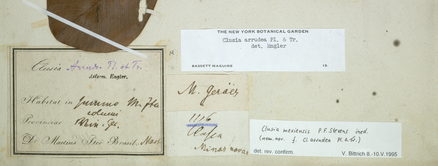 THE NEW YORK BOTANICAL GARDEN
Clusia arrudea Pl. & Tr.
det. Engler
BASSETT MAGUIRE 19
Clusia Arrud. Pl. et Tr.
determ. Engler.
Habitat in
Provinciae
Dr. Martius Iter Brasil.
M. Geráës
1116
Clusea
Minas novas
Clusia P.F. Stevens ined.
(nom. nov. f. Cl. arrudea Pl. & Tr.)
det. rev. confirm. V. Bittrich 8.-10.V.1995